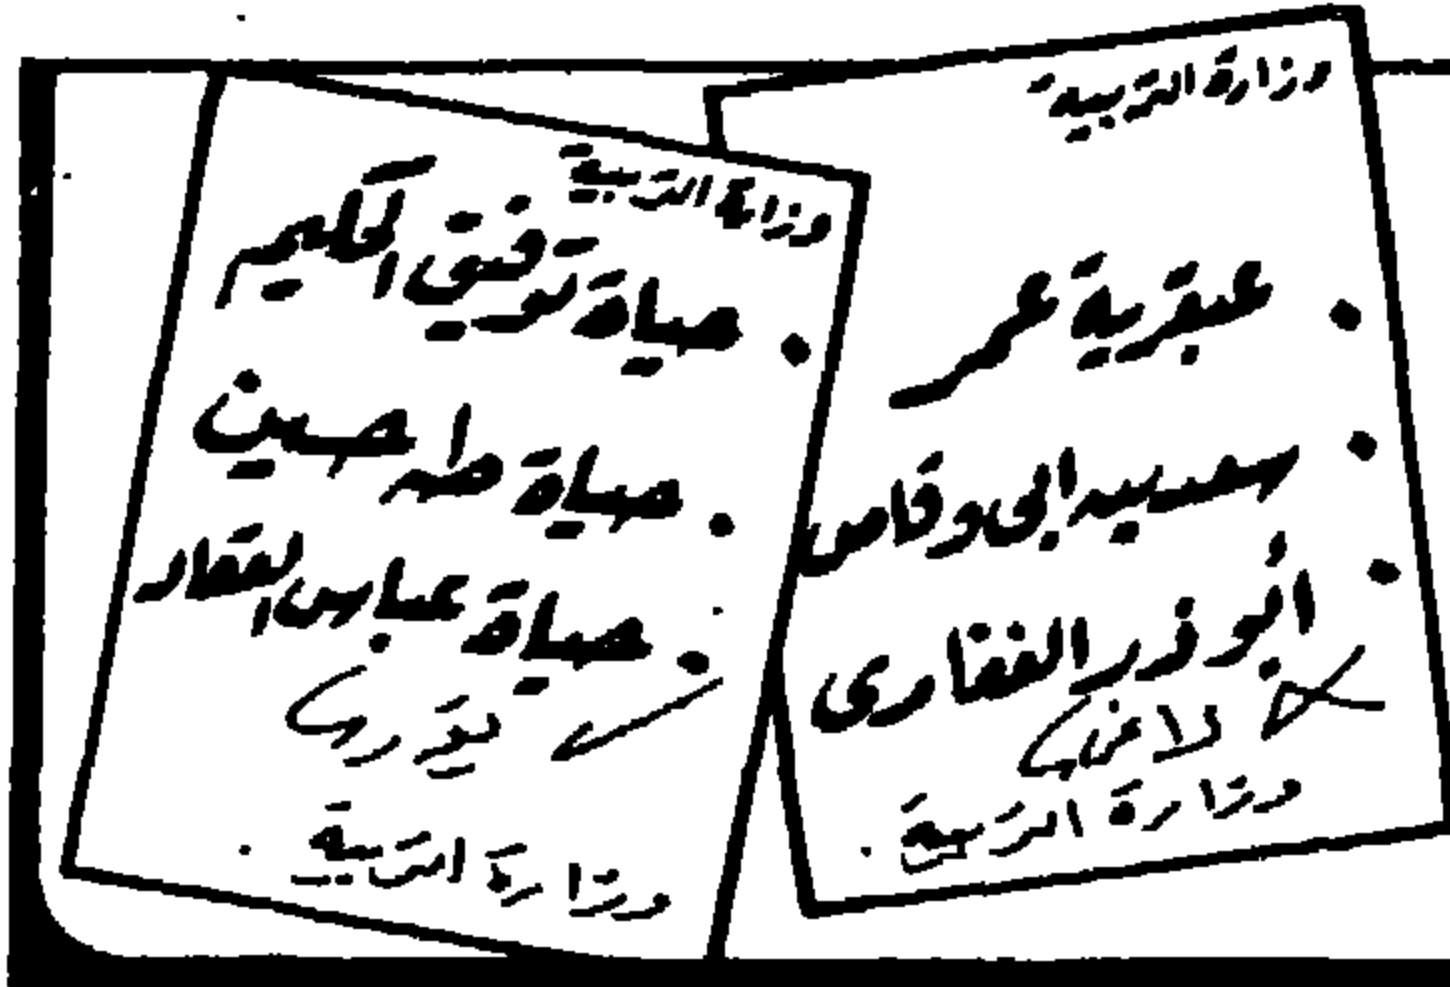 وزارة التربية
• عبقرية عمر
• سعد بن ابى وقاص
• أبو ذر الغفارى
لاغى
وزارة التربية
وزارة التربية
• حياة توفيق الحكيم
• حياة طه حسين
• حياة عباس العقاد
يقرر
وزارة التربية